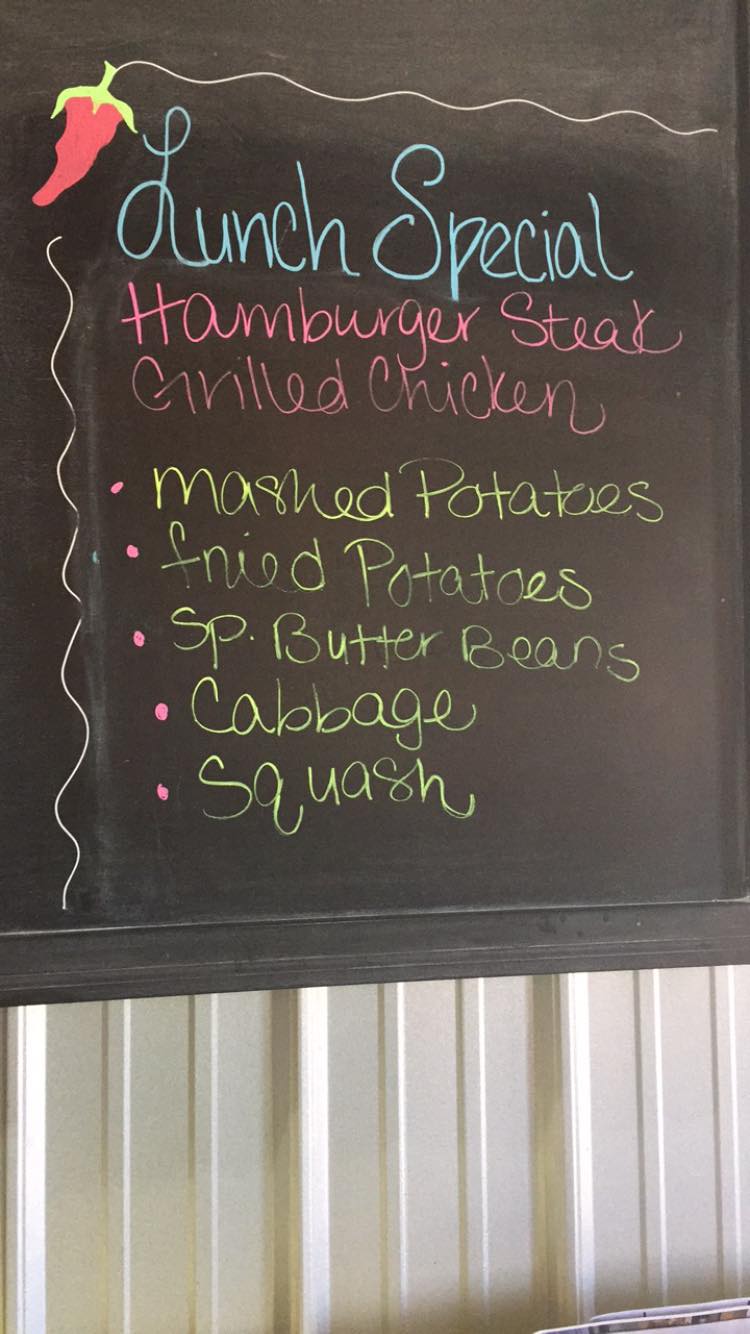 Lunch Special
Hamburger Steak
Grilled Chicken
• Mashed Potatoes
• fried Potatoes
• Sp. Butter Beans
• Cabbage
• Squash